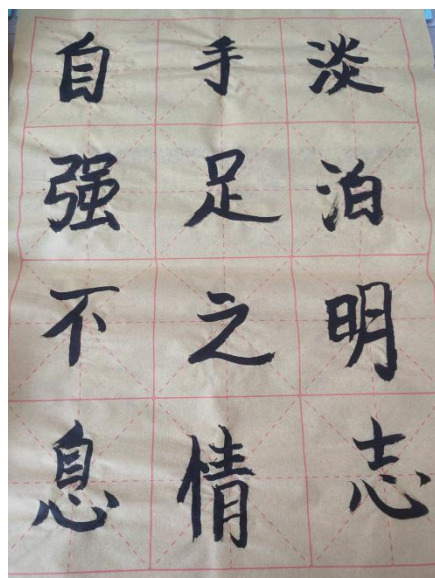 淡泊明志
手足之情
自强不息